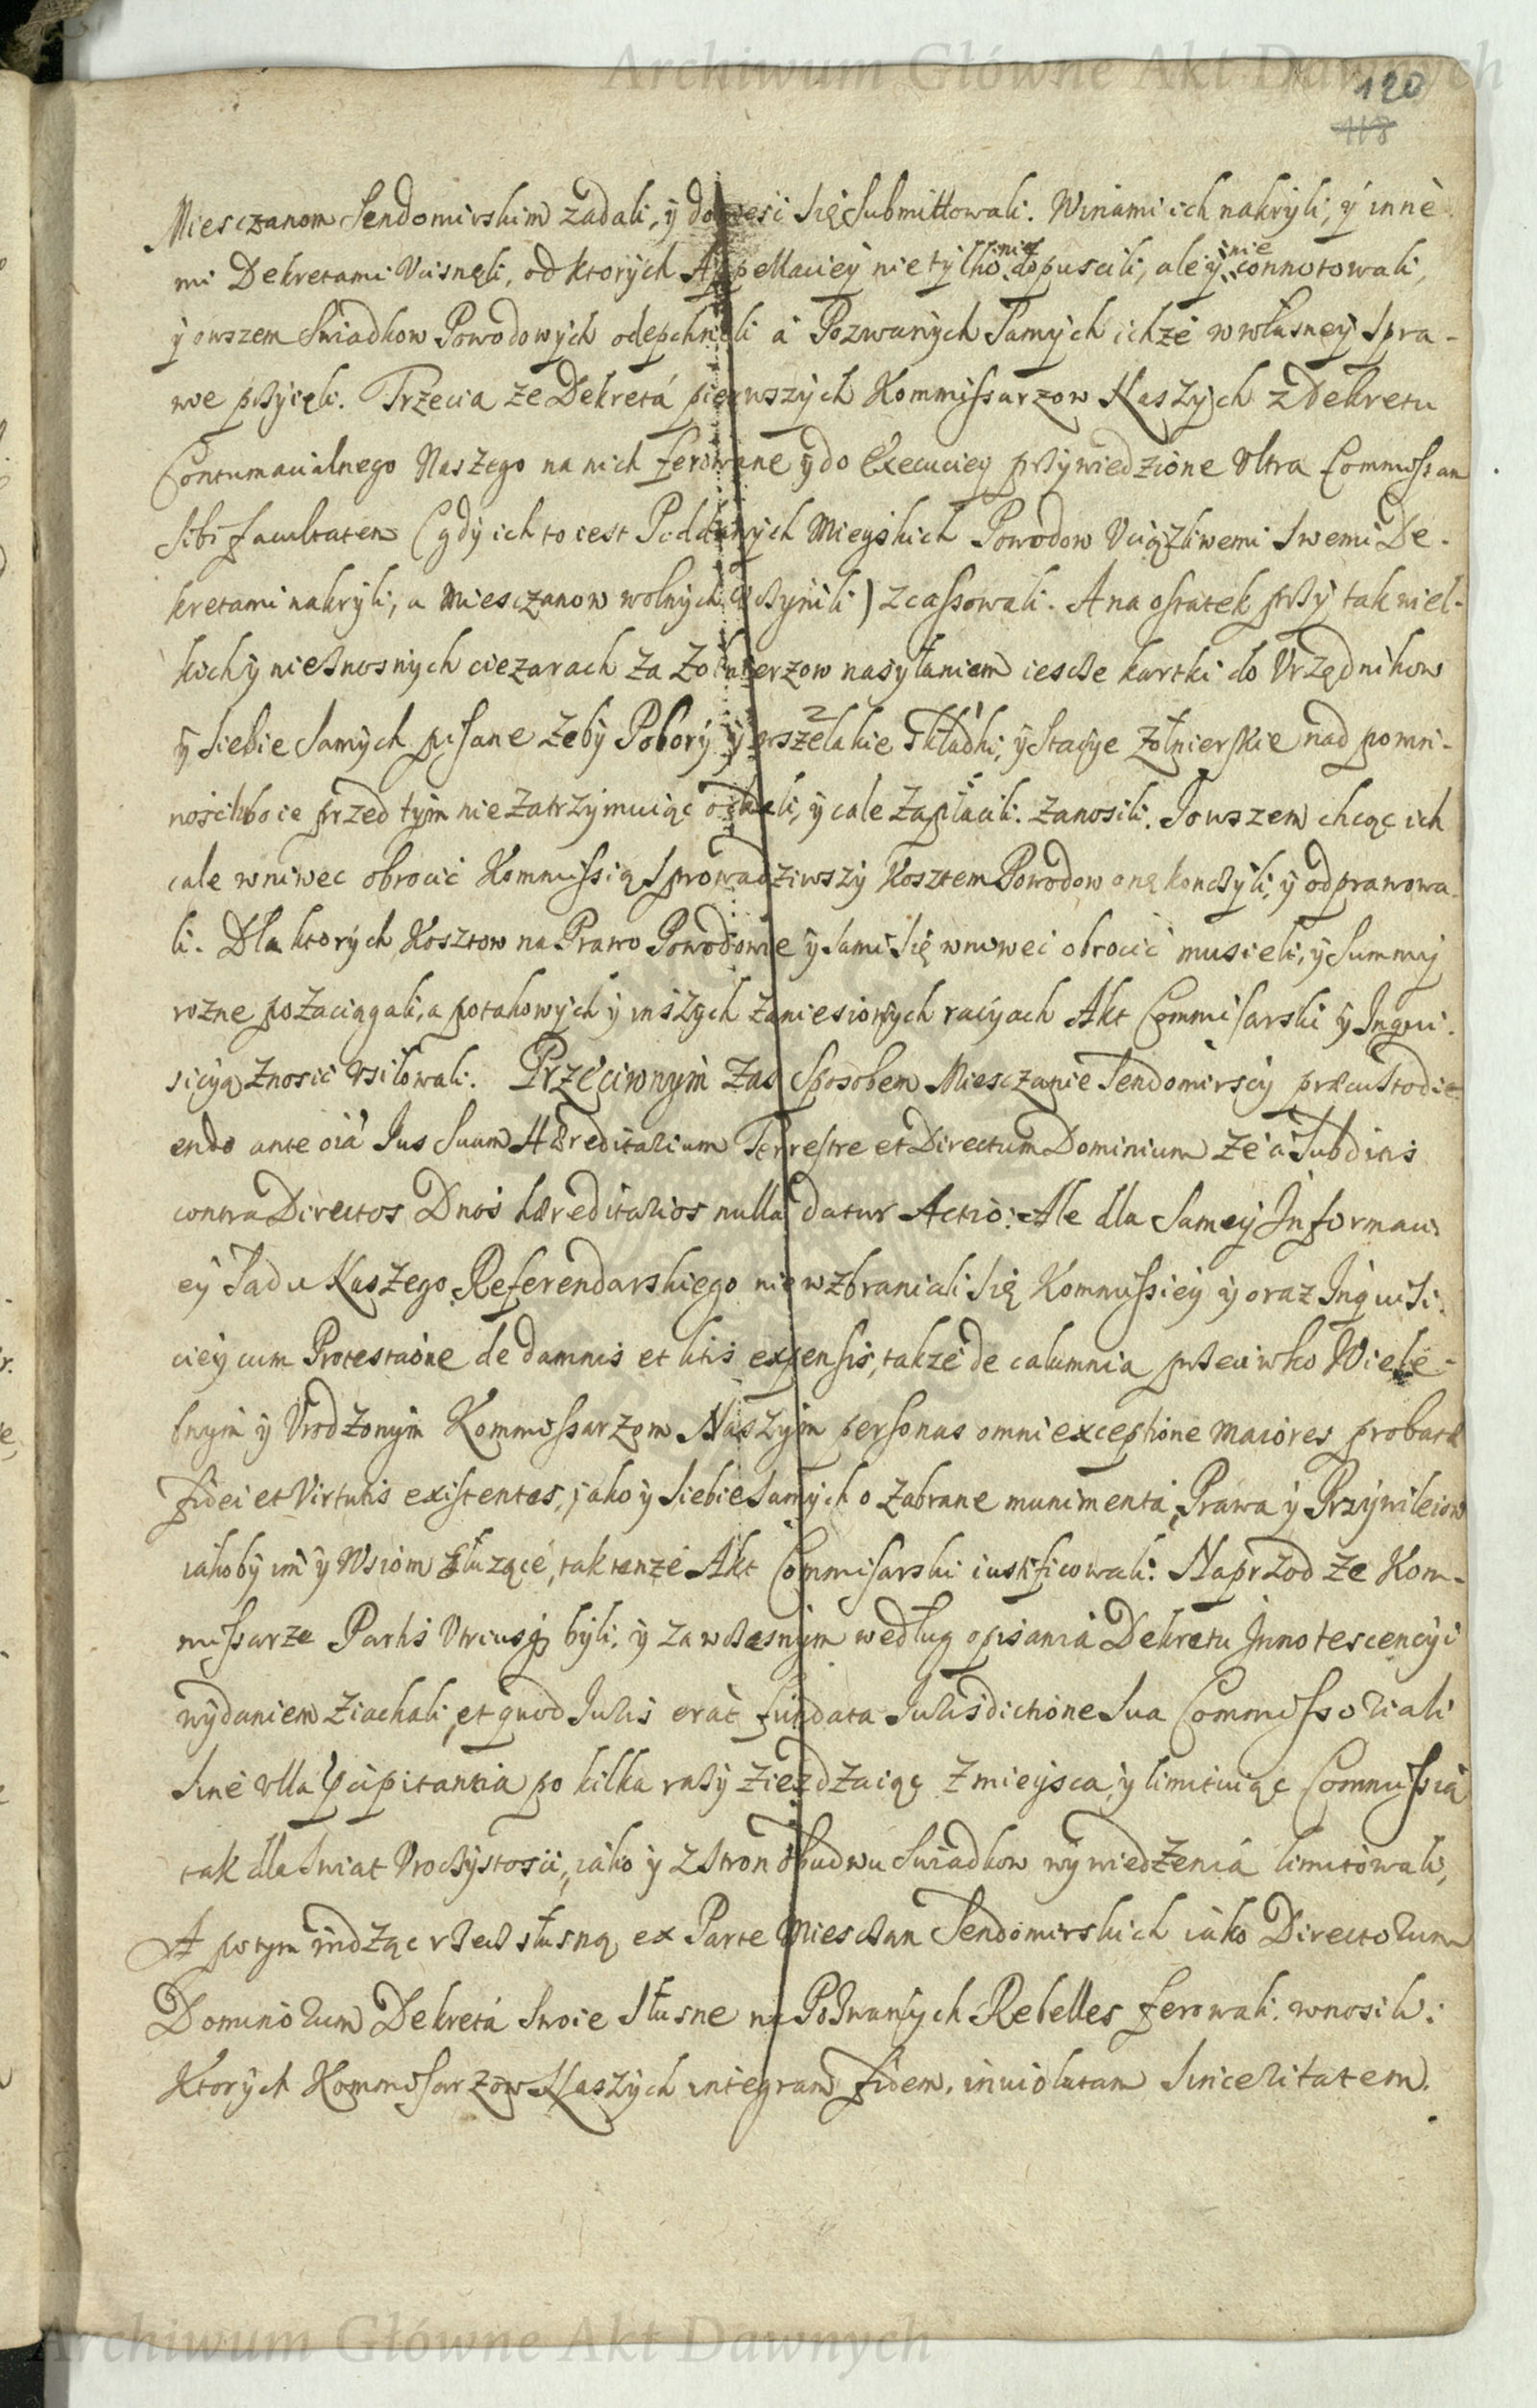 Archiwum Główne Akt Dawnych
120
118
Miesczanom Sendomirskim zadali, ÿ dowiesć się submittowali. Winami ich nakryli, ÿ inne-
mi Dekretami Vcisnęli, od ktorych Appellaciey nie tylko nie dopuscili, ale ÿ nie connotowali,
ÿ owszem Swiadkow Powodowych odepchnęli á Pozwanÿch Samÿch ichże w własney Spra-
wie przyięli. Trzecia ze Dekretá pierwszych Kommissarzow Naszÿch z Dekretu
Contumacialnego Naszego na nich ferowane ÿ do Execucieÿ przywiedzione Vltra Commissam
sibi facultatem (gdÿ ich to iest Poddanych Mieÿskich Powodow Vciążliwemi Swemi De-
kretami nakrÿli, a Miesczanow wolnych vczynili) zcassowali. A na ostatek przÿ tak wiel-
kich ÿ nieznosnych ciezarach za Zołnierzow nasÿłaniem iescze kartki do Vrzędnikow
ÿ siebie samÿch pisane zebÿ Poborÿ ÿ wszelakie składki, ÿ Stacÿe Zołnierskie nad powin-
nosć lubo ie przed tÿm nie zatrzÿmuiąc oddali, ÿ cale zapłacili. zanosili. I owszem chcąc ich
cale wniwec obrocić Kommissią sprowadziwszÿ Kosztem Powodow onę konczÿli, ÿ odprawowa-
li. Dla ktorÿch Kosztow na Prawo Powodowie ÿ sami się wniwec obrocić musieli, ÿ Summÿ
rozne pozaciągali, a po takowÿch ÿ inszÿch zaniesionÿch racÿach Akt Commisarski ÿ Inqui-
sicÿą znosić vsiłowali. Przeciwnÿm zaś sposobem Miesczanie Sendomirscÿ præcustodi-
endo ante oia Ius suum Hæreditarium Terrestre et Directum Dominium że à Subditis
contra Directos Dnos hæreditarios nulla datur Actio: Ale dla samey Informaci-
eÿ Sadu Naszego Referendarskiego nie wzbraniali się Kommissieÿ ÿ oraz Inquisi-
cieÿ cum Protestaõne de damnis et litis expensis, także de calumnia przeciwko Wiele-
bnym ÿ Vrodzonÿm Kommissarzom Naszÿm personas omni exceptione maiores probatæ
fidei et Virtutis existentes, iako ÿ siebie samÿch o zabrane munimentá, Prawa ÿ Przÿwileiow
iakobÿ im ÿ Wsiom słuząće, tak tenże Akt Commisarski iustificowali: Naprzod że Kom-
missarze Partis Vtriusq bÿli, ÿ za wczesnym według opisania Dekretu Innotescencÿi
wÿdaniem ziachali, et quod Iuris erat fundata Iurisdictione Sua Commissoriali
Sine vlla Præcipitantia po kilka razÿ ziezdzaiąc z mieÿsca, ÿ limituiąc Commissią
tak dla swiat Vroczÿstosci, iako ÿ z stron obudwu swiadkow wÿwiedzenia limitowali,
A potÿm widząc rzecz słusną ex Parte Miesczan Sendomirskich iako Directorum
Dominorum Dekretá swoie słusne na Pozwanÿch Rebelles ferowali. wnosili:
Ktorÿch Kommissarzow Naszÿch integram fidem, inuiolatam sinceritatem.
Archiwum Główne Akt Dawnych